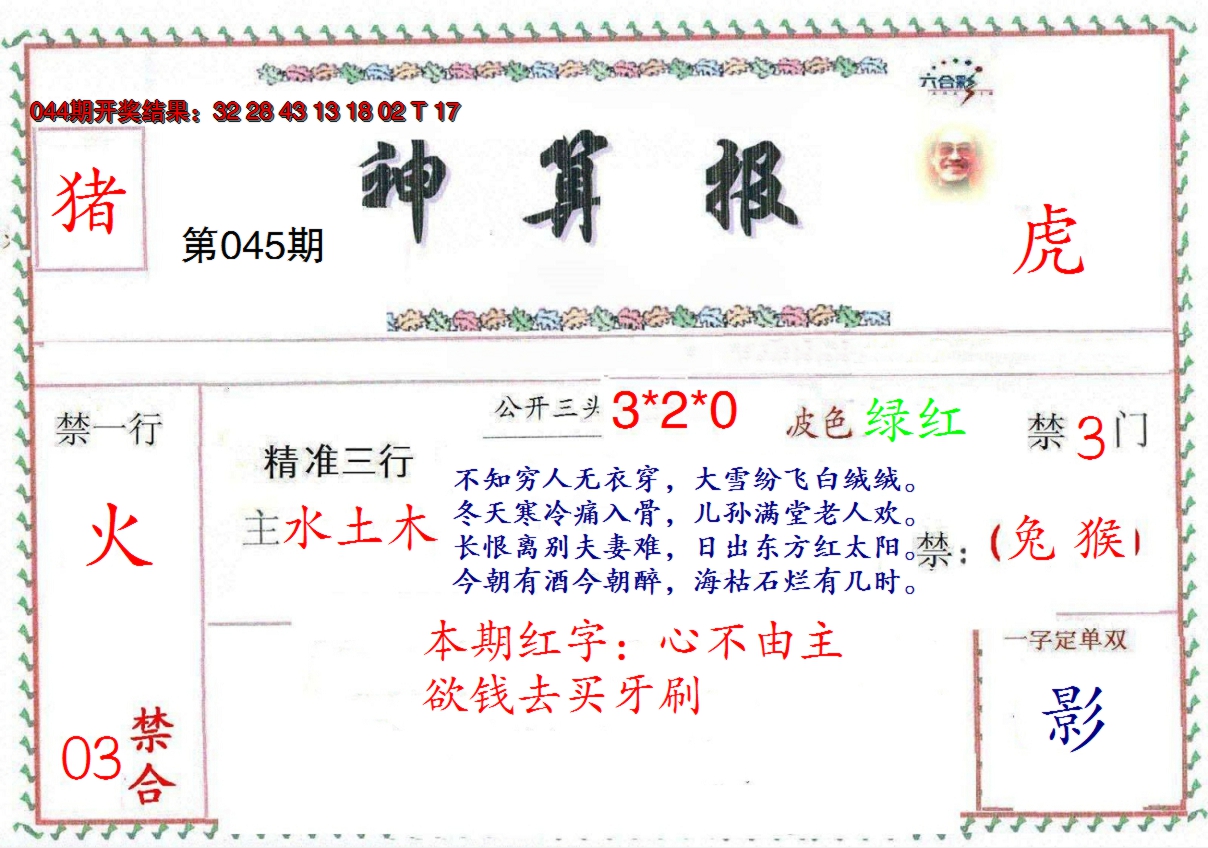 六合彩
044期开奖结果：32 28 43 13 18 02 T 17
神算报
猪
第045期
虎
公开三头 3*2*0 波色 绿红
禁一行
火
03 禁合
精准三行
主水土木
不知穷人无衣穿，大雪纷飞白绒绒。
冬天寒冷痛入骨，儿孙满堂老人欢。
长恨离别夫妻难，日出东方红太阳。
今朝有酒今朝醉，海枯石烂有几时。
禁3门
禁：（兔 猴）
本期红字：心不由主
欲钱去买牙刷
一字定单双
影